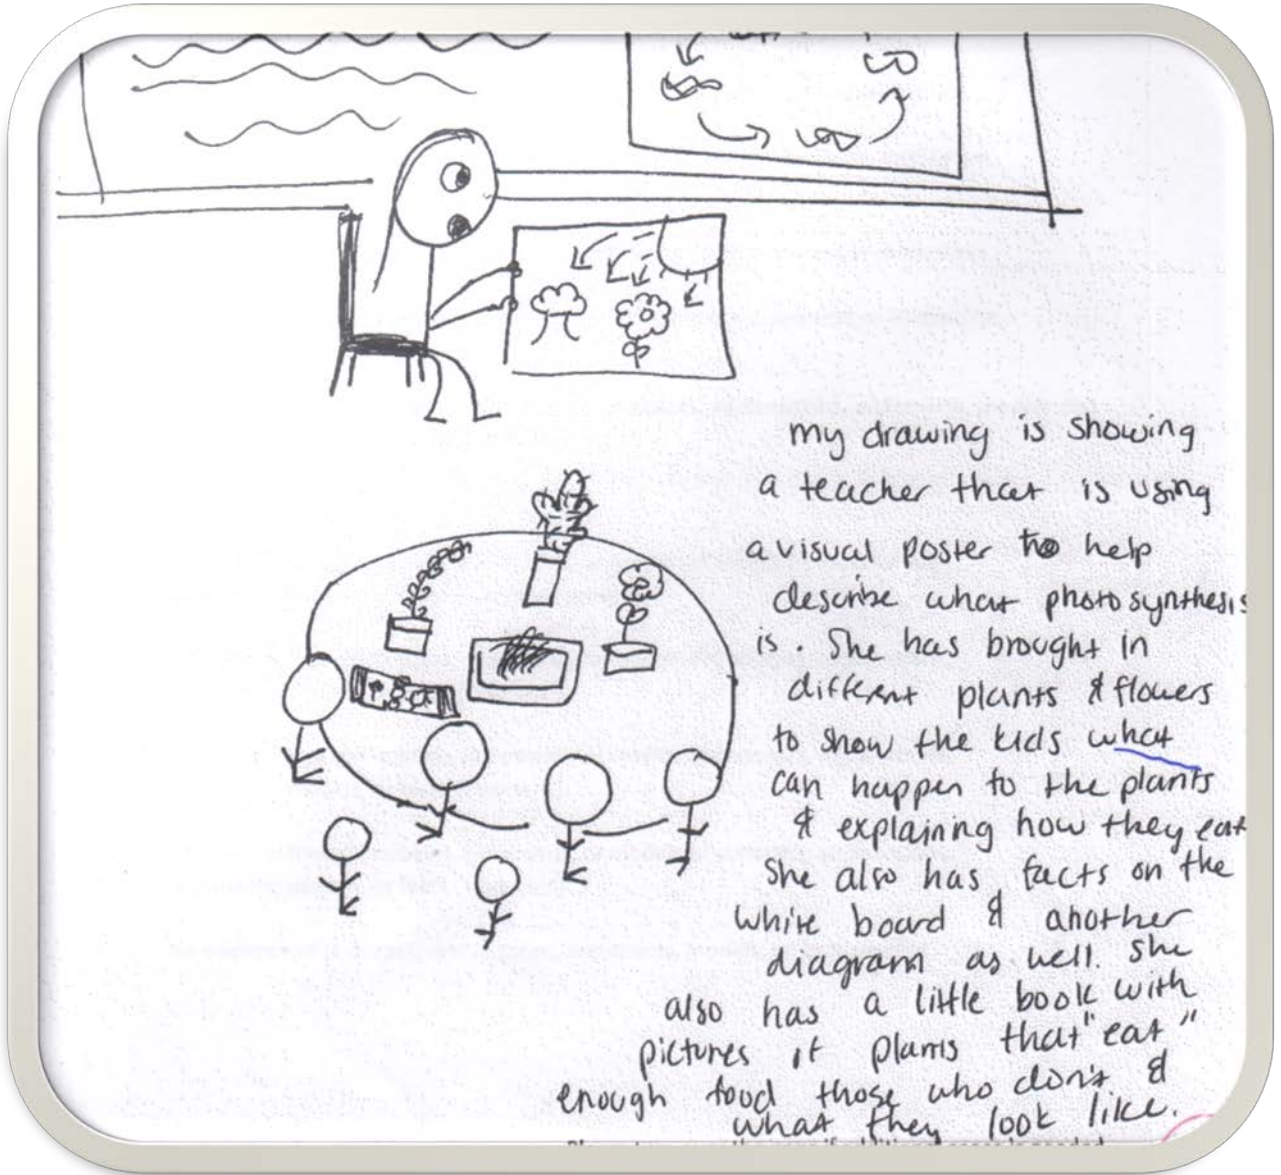 my drawing is showing
a teacher that is using
a visual poster to help
describe what photosynthesis
is. She has brought in
different plants & flowers
to show the kids what
can happen to the plants
& explaining how they eat
She also has facts on the
white board & another
diagram as well. She
also has a little book with
pictures of plants that "eat"
enough food those who don't &
what they look like.